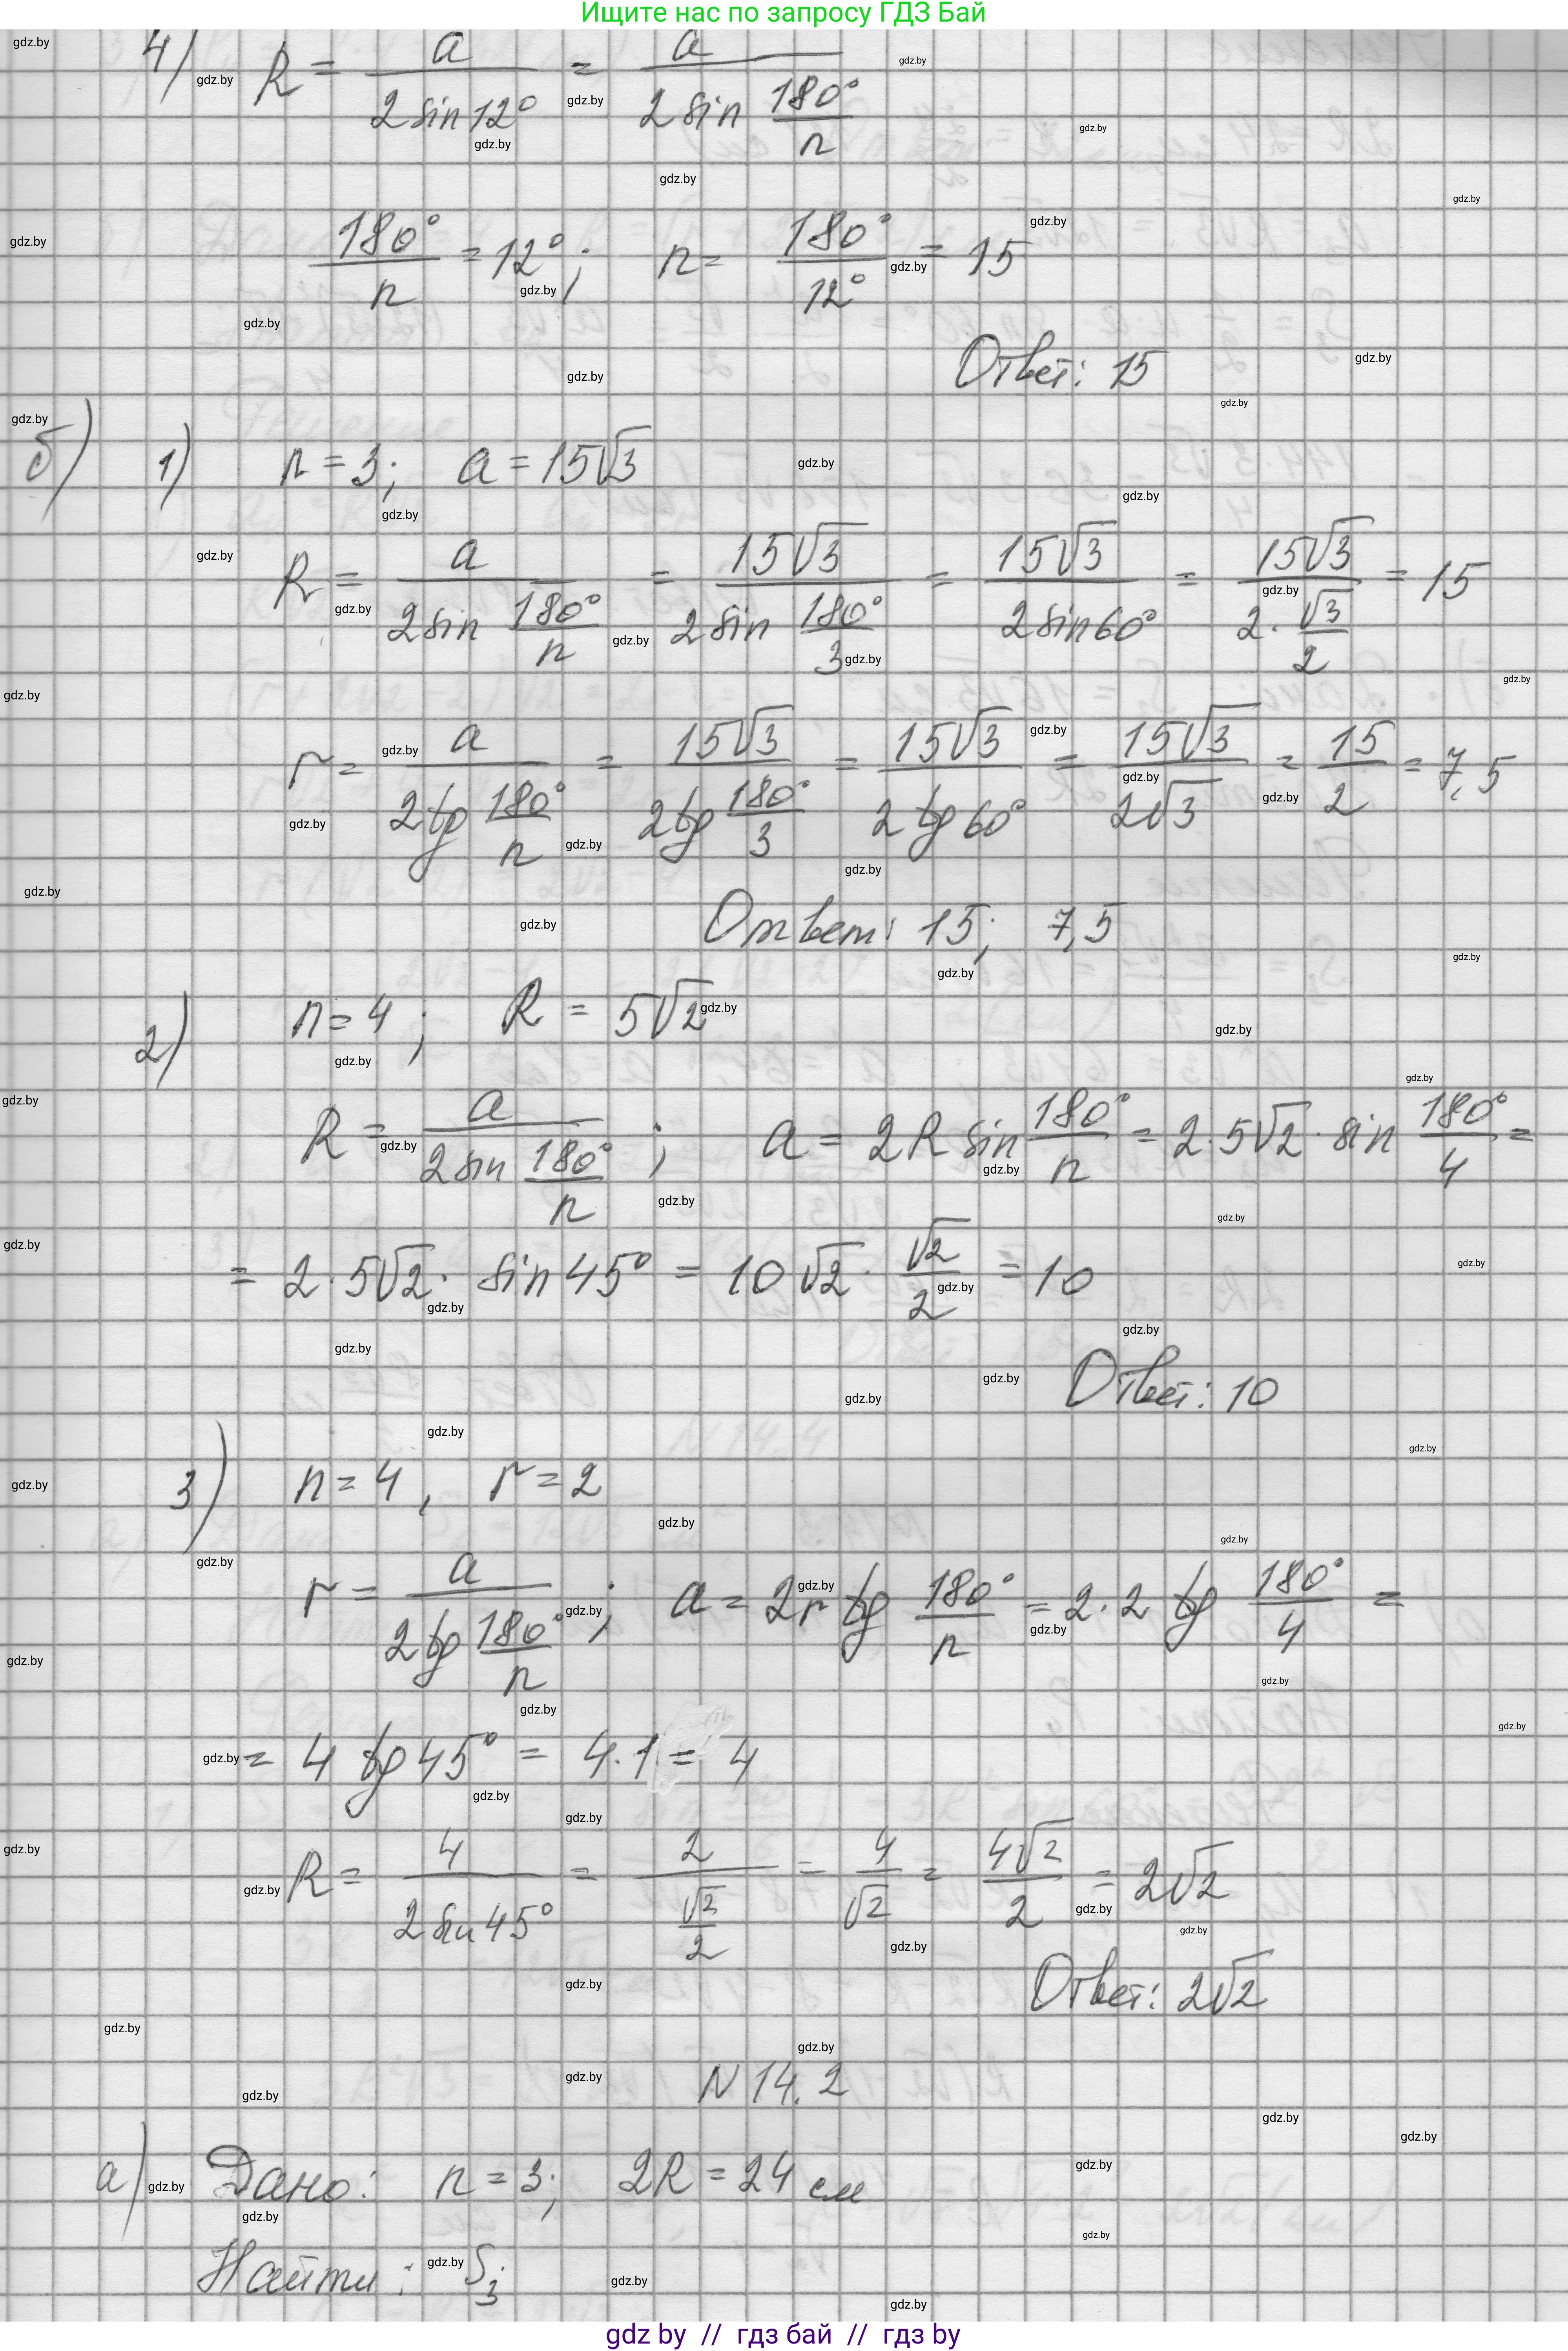 Ищите нас по запросу ГДЗ Бай
4) R = a / (2 sin 12°) = a / (2 sin 180°/n)
180°/n = 12°; n = 180°/12° = 15
Ответ: 15
б) 1) n = 3; a = 15√3
R = a / (2 sin 180°/n) = 15√3 / (2 sin 180°/3) = 15√3 / (2 sin 60°) = 15√3 / (2 · √3/2) = 15
r = a / (2 tg 180°/n) = 15√3 / (2 tg 180°/3) = 15√3 / (2 tg 60°) = 15√3 / (2√3) = 15/2 = 7,5
Ответ: 15; 7,5
2) n = 4; R = 5√2
R = a / (2 sin 180°/n); a = 2R sin 180°/n = 2 · 5√2 · sin 180°/4 =
= 2 · 5√2 · sin 45° = 10√2 · √2/2 = 10
Ответ: 10
3) n = 4, r = 2
r = a / (2 tg 180°/n); a = 2r tg 180°/n = 2 · 2 tg 180°/4 =
= 4 tg 45° = 4 · 1 = 4
R = 4 / (2 sin 45°) = 2 / (√2/2) = 4/√2 = 4√2/2 = 2√2
Ответ: 2√2
N 14.2
а) Дано: n = 3; 2R = 24 см
Найти: S₃
gdz by // гдз бай // гдз by